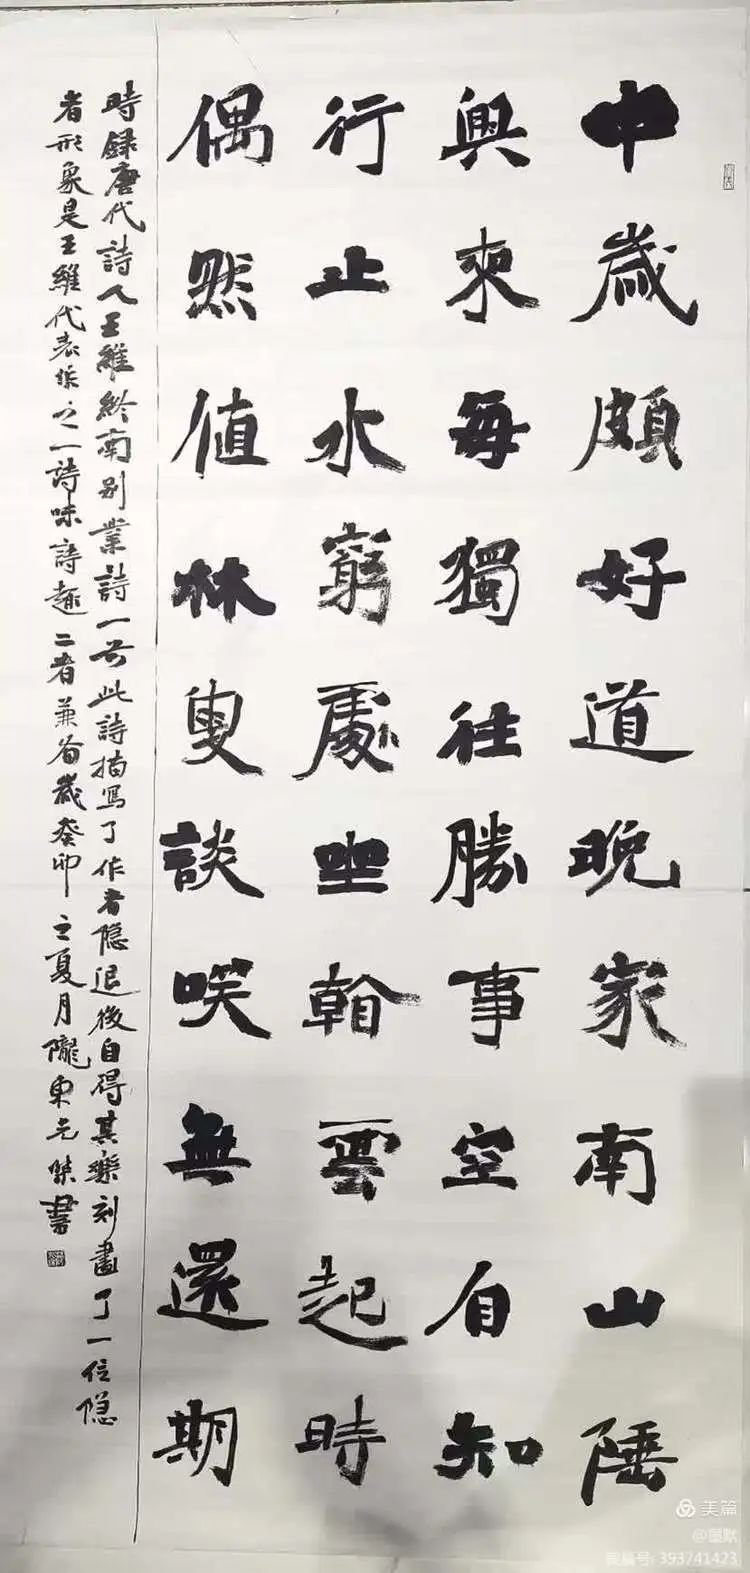 中歲頗好道晚家南山陲
興來每獨往勝事空自知
行止水窮處坐看雲起時
偶然值林叟談咲無還期
時録唐代詩人王維終南別業詩一首此詩描寫了作者隐退後自得其樂刻畫了一位隐
者形象是王維代表作之一詩味詩趣二者兼備歲癸卯之夏月隴東元傑書
美篇
@墨默
美篇号: 393741423